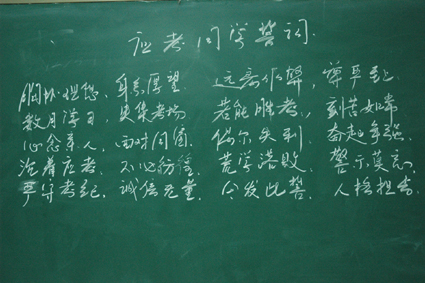 应考同学誓词
胸怀理想、身系厚望 远离作弊，尊严至上
数月学习，集考场 若能胜考，刻苦如常
心念亲人，面对同窗 偶尔失利，奋起争强
沉着应考，不必彷徨 荒学落败，警示莫忘
严守考纪，诚信无量 今发此誓，人格担当